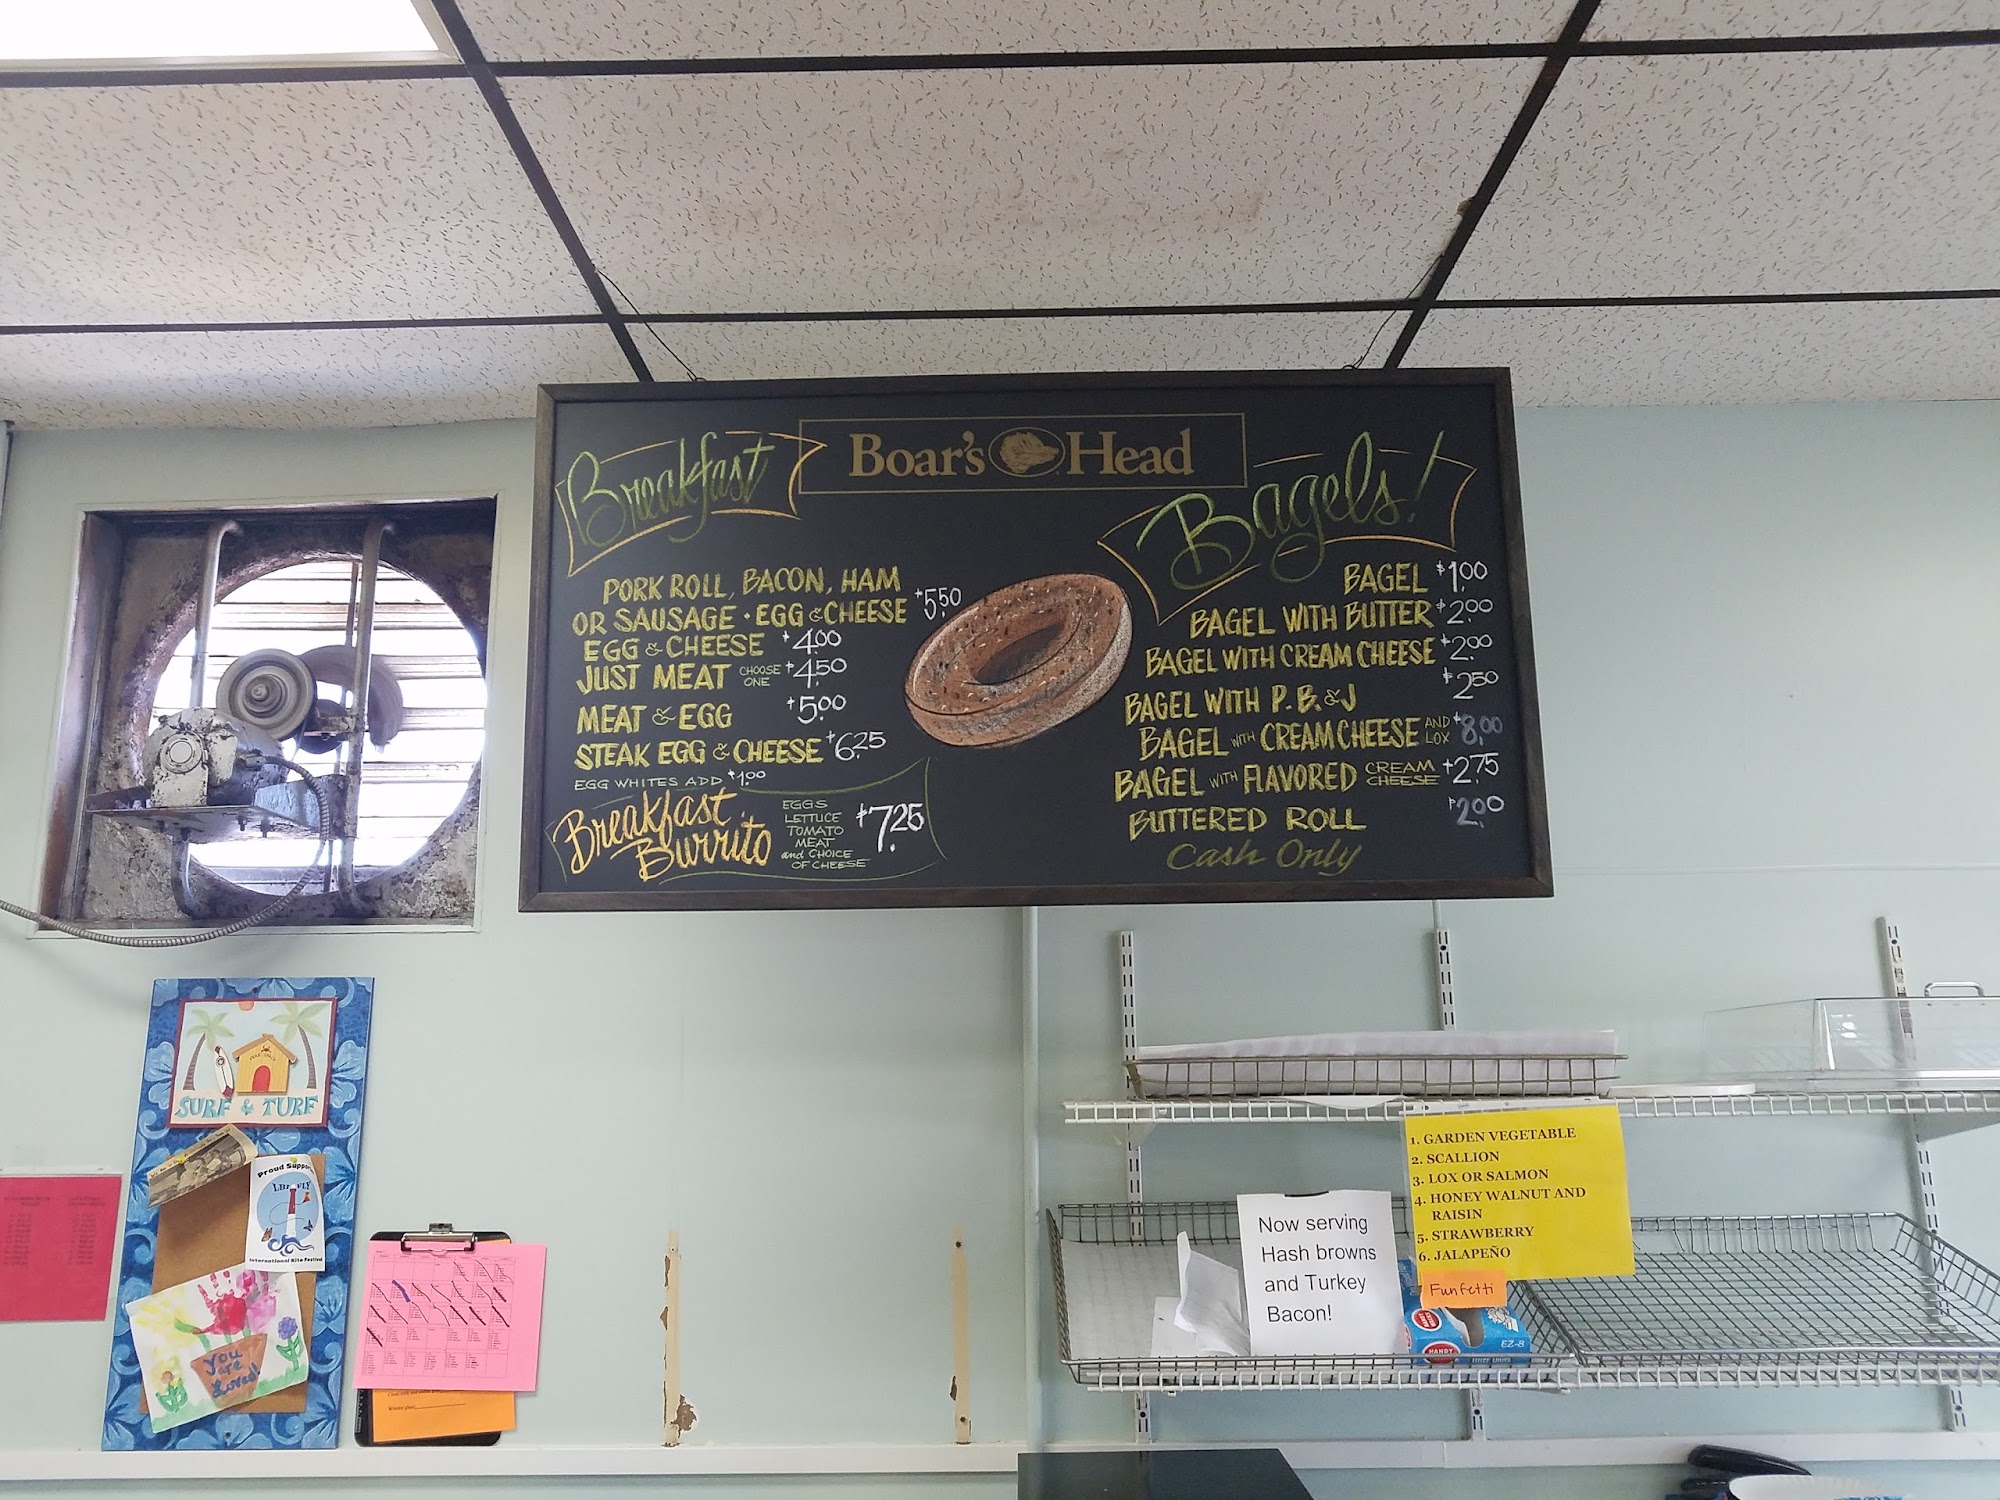 Boar's Head
Breakfast
PORK ROLL, BACON, HAM
OR SAUSAGE • EGG & CHEESE $5.50
EGG & CHEESE $4.00
JUST MEAT CHOOSE ONE $4.50
MEAT & EGG $5.00
STEAK EGG & CHEESE $6.25
EGG WHITES ADD $1.00
Breakfast
Burrito
EGGS
LETTUCE
TOMATO
MEAT
and CHOICE
OF CHEESE
$7.25
Bagels!
BAGEL $1.00
BAGEL WITH BUTTER $2.00
BAGEL WITH CREAM CHEESE $2.00
BAGEL WITH P.B. & J $2.50
BAGEL WITH CREAM CHEESE AND LOX $8.00
BAGEL WITH FLAVORED CREAM CHEESE $2.75
BUTTERED ROLL $2.00
Cash Only
SURF & TURF
Proud Suppo
LBI FLY
International Kite Festival
you
are
Loved!
1. GARDEN VEGETABLE
2. SCALLION
3. LOX OR SALMON
4. HONEY WALNUT AND
RAISIN
5. STRAWBERRY
6. JALAPEÑO
Funfetti
Now serving
Hash browns
and Turkey
Bacon!
HANDY
EZ-8